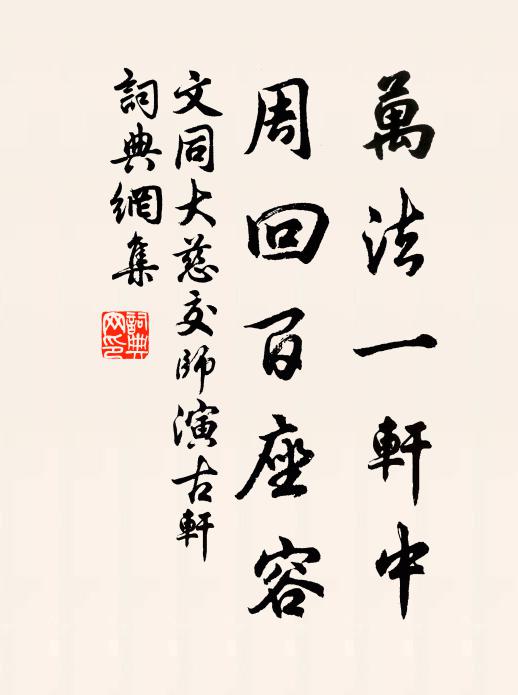 萬法一軒中
周回百座容
文同大慈交師演古軒
詞典網集
詞典網印